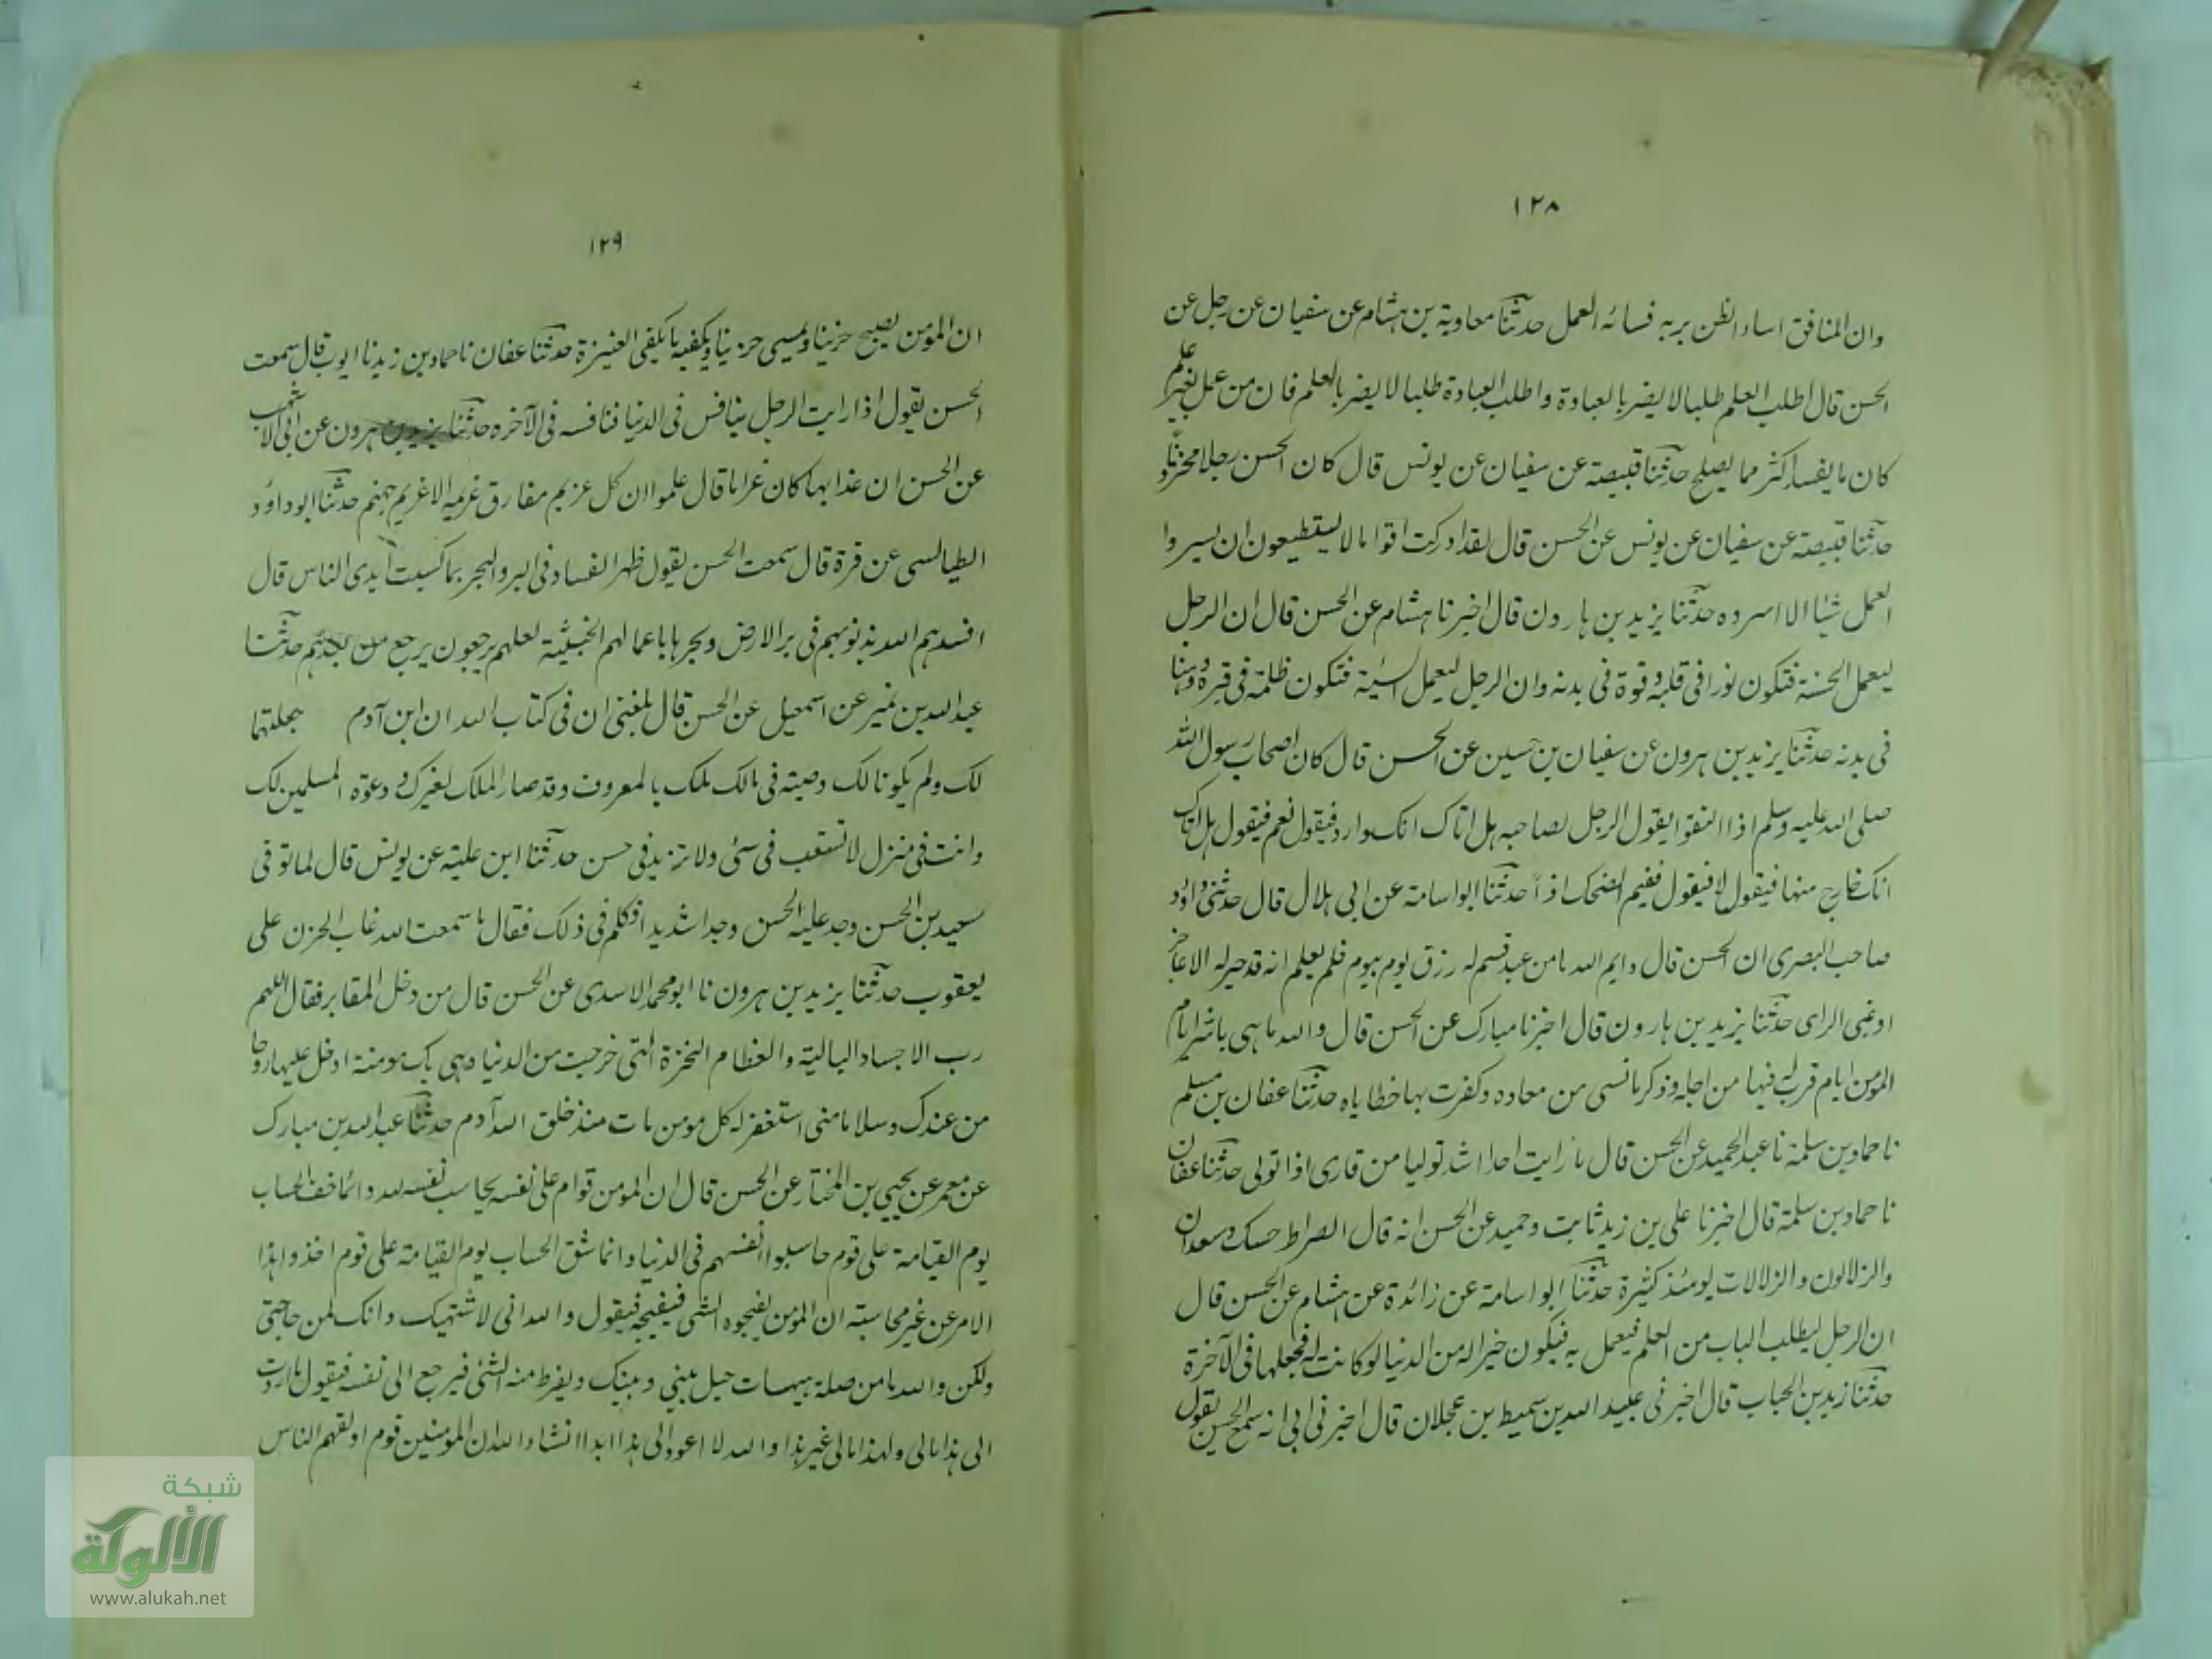 ١٢٨
وان المنافق اساء الظن بربه فسائه العمل حدثنا معاوية بن هشام عن سفيان عن رجل عن
الحسن قال اطلب العلم طلبا لا يضر بالعبادة واطلب العبادة طلبا لا يضر بالعلم فان من عمل بغير علم
كان ما يفسد اكثر مما يصلح حدثنا قبيصة عن سفيان عن يونس قال كان الحسن رجلا محزونا
حدثنا قبيصة عن سفيان عن يونس عن الحسن قال لقد ادركت اقواما لا يستطيعون ان يسروا
العمل شيئا الا اسروه حدثنا يزيد بن هارون قال اخبرنا هشام عن الحسن قال ان الرجل
ليعمل الحسنة فتكون نورا فى قلبه وقوة فى بدنه وان الرجل ليعمل السيئة فتكون ظلمة فى قبره ووهنا
فى بدنه حدثنا يزيد بن هرون عن سفيان بن حسين عن الحسن قال كان اصحاب رسول الله
صلى الله عليه وسلم اذا التقوا يقول الرجل لصاحبه هل اتاك انك وارد فيقول نعم فيقول هل اتاك
انك خارج منها فيقول لا فيقول ففيم الضحك اذاً حدثنا ابو اسامة عن ابى هلال قال حدثنى داؤد
صاحب البصرى ان الحسن قال وايم الله ما من عبد قسم له رزق يوم بيوم فلم يعلم انه قد خير له الا عاجز
او غبى الراى حدثنا يزيد بن هارون قال اخبرنا مبارك عن الحسن قال والله ما هى باشر ايام
المومن ايام قرب له فيها من اجله وذكر ما نسى من معاده وكفرت بها خطاياه حدثنا عفان بن مسلم
نا حماد بن سلمة نا عبد الحميد عن الحسن قال ما رايت احدا اشد توليا من قارى اذا تولى حدثنا عفان
نا حماد بن سلمة قال اخبرنا على بن زيد ثابت وحميد عن الحسن انه قال الصراط حسك وسعدان
والزلالون والزلالات يومئذ كثيرة حدثنا ابو اسامة عن زائدة عن هشام عن الحسن قال
ان الرجل ليطلب الباب من العلم فيعمل به فيكون خيرا له من الدنيا لو كانت له فجعلها فى الآخرة
حدثنا زيد بن الحباب قال اخبرنى عبيد الله بن سميط بن عجلان قال اخبرنى ابى انه سمع الحسن يقول
١٢٩
ان المؤمن يصبح حزينا ويمسى حزينا ويكفيه ما يكفى العنيزة حدثنا عفان نا حماد بن زيد نا ايوب قال سمعت
الحسن يقول اذا رايت الرجل ينافس فى الدنيا فنافسه فى الآخره حدثنا يزيد بن هرون عن ابى الاشهب
عن الحسن ان عذابها كان غراما قال علموا ان كل غريم مفارق غريمه الا غريم جهنم حدثنا ابو داؤد
الطيالسى عن قرة قال سمعت الحسن يقول ظهر الفساد فى البر والبحر بما كسبت أيدى الناس قال
افسدهم الله بذنوبهم فى بر الارض وبحرها باعمالهم الخبيثة لعلهم يرجعون يرجع من بعدهم حدثنا
عبد الله بن نمير عن اسمعيل عن الحسن قال بلغنى ان فى كتاب الله ان ابن آدم جعلتهما
لك ولم يكونا لك وصية فى مالك بالمعروف وقد صار الملك لغيرك ودعوة المسلمين لك
وانت فى منزل لا تستعتب فى سئ ولا تزيد فى حسن حدثنا ابن علية عن يونس قال لما توفى
سعيد بن الحسن وجد عليه الحسن وجدا شديدا فكلم فى ذلك فقال ما سمعت الله عاب الحزن على
يعقوب حدثنا يزيد بن هرون نا ابو محمد الاسدى عن الحسن قال من دخل المقابر فقال اللهم
رب الاجساد البالية والعظام النخرة التى خرجت من الدنيا وهى بك مومنة ادخل عليها روحا
من عندك وسلاما منى استغفر له كل مومن مات منذ خلق الله آدم حدثنا عبد الله بن مبارك
عن معمر عن يحيى بن المختار عن الحسن قال ان المومن قوام على نفسه يحاسب نفسه لله وانما خف الحساب
يوم القيامة على قوم حاسبوا انفسهم فى الدنيا وانما شق الحساب يوم القيامة على قوم اخذوا هذا
الامر عن غير محاسبة ان المومن يفجوه الشى فيقول والله انى لاشتهيك وانك لمن حاجتى
ولكن والله ما من صلة هيهات حيل بينى وبينك ويفرط منه الشئى فيرجع الى نفسه فيقول ما اردت
الى هذا مالى ولهذا مالى غير هذا والله لا اعود الى هذا ابدا انشاء الله ان المؤمنين قوم اوثقهم الناس
شبكة
الألوكة
www.alukah.net